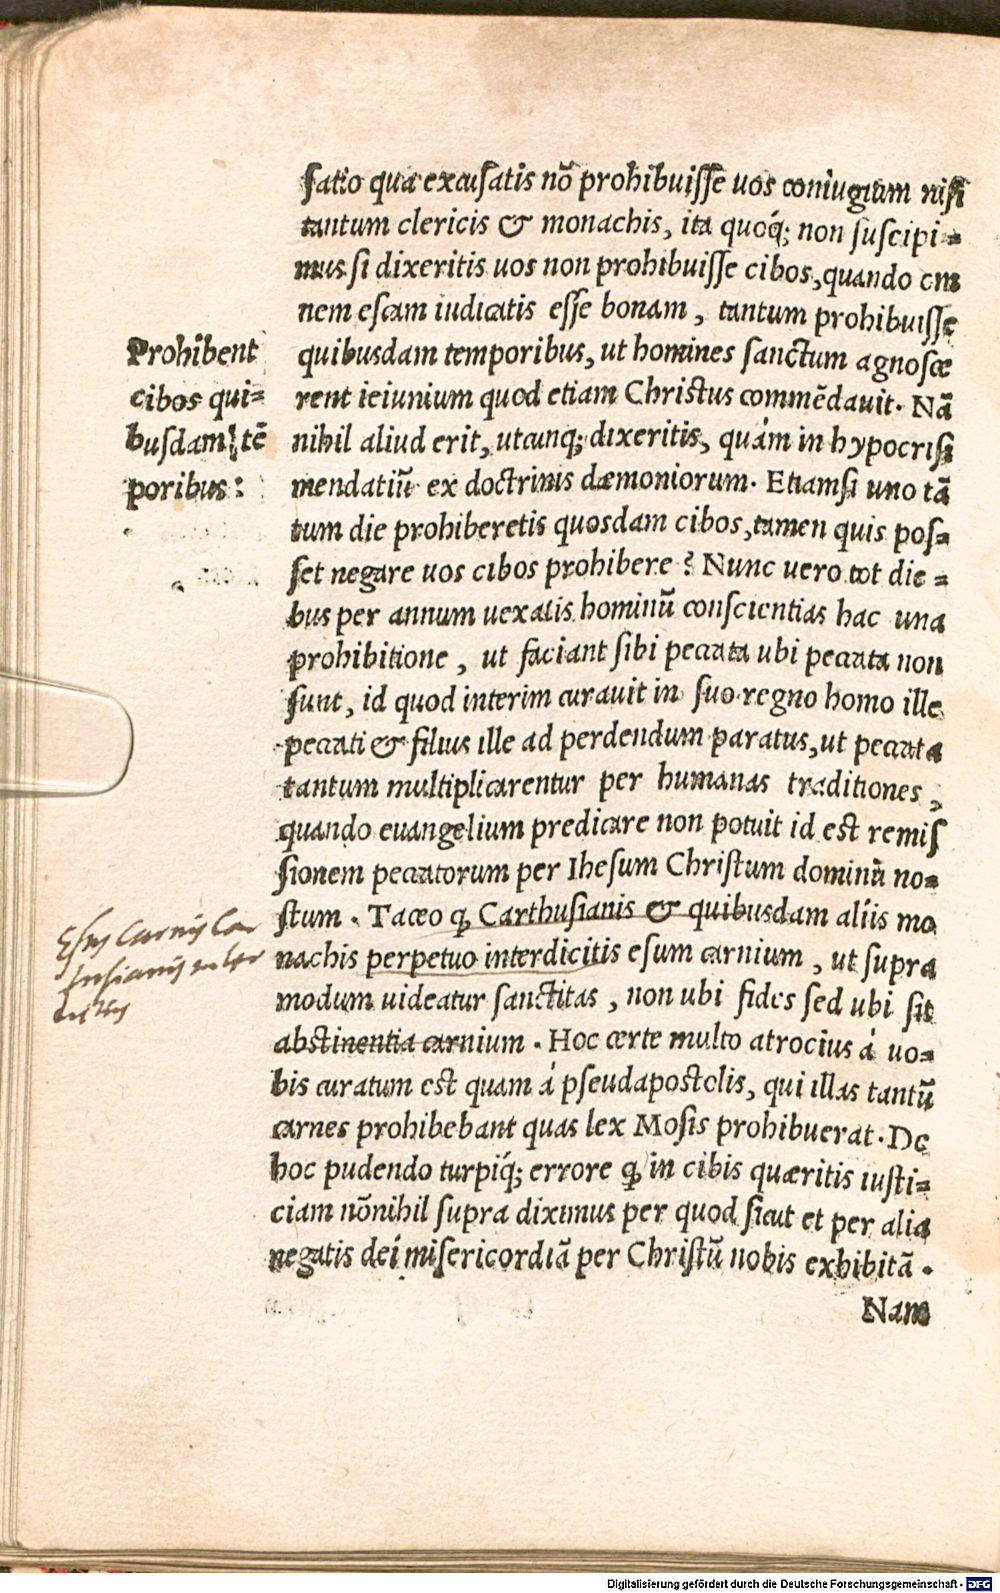 ſatio qua excuſatis nõ prohibuiſſe uos coniugium niſi
tantum clericis & monachis, ita quoq́; non ſuſcipi=
mus ſi dixeritis uos non prohibuiſſe cibos, quando om
nem eſcam iudicatis eſſe bonam, tantum prohibuiſſe
quibusdam temporibus, ut homines ſanctum agnoſce
rent ieiunium quod etiam Christus commẽdauit. Nã
nihil aliud erit, utcunq; dixeritis, quám in hypocriſi
mendatiũ ex doctrinis dæmoniorum. Etiamſi uno tã
tum die prohiberetis quosdam cibos, tamen quis poſ=
ſet negare uos cibos prohibere? Nunc uero tot die=
bus per annum uexatis hominũ conſcientias hac una
prohibitione, ut faciant ſibi peccata ubi peccata non
ſunt, id quod interim curauit in ſuo regno homo ille
peccati & filius ille ad perdendum paratus, ut peccata
tantum multiplicarentur per humanas traditiones,
quando euangelium predicare non potuit id est remiſ
ſionem peccatorum per Iheſum Chriſtum dominũ no=
ſtum. Taceo ꝙ Carthuſianis & quibusdam aliis mo
nachis perpetuo interdicitis eſum carnium, ut ſupra
modum uideatur ſanctitas, non ubi fides ſed ubi ſit
abstinentia carnium. Hoc certe multo atrocius á uo=
bis curatum est quam á pſeudapostolis, qui illas tantũ
carnes prohibebant quas lex Moſis prohibuerat. De
hoc pudendo turpiq́; errore ꝙ in cibis quæritis iuſti=
ciam nõnihil ſupra diximus per quod ſicut et per alia
negatis dei miſericordiã per Chriſtũ nobis exhibitã.
Nam
Prohibent
cibos qui=
buſdam tẽ
poribus:
Eſus Carnis Car